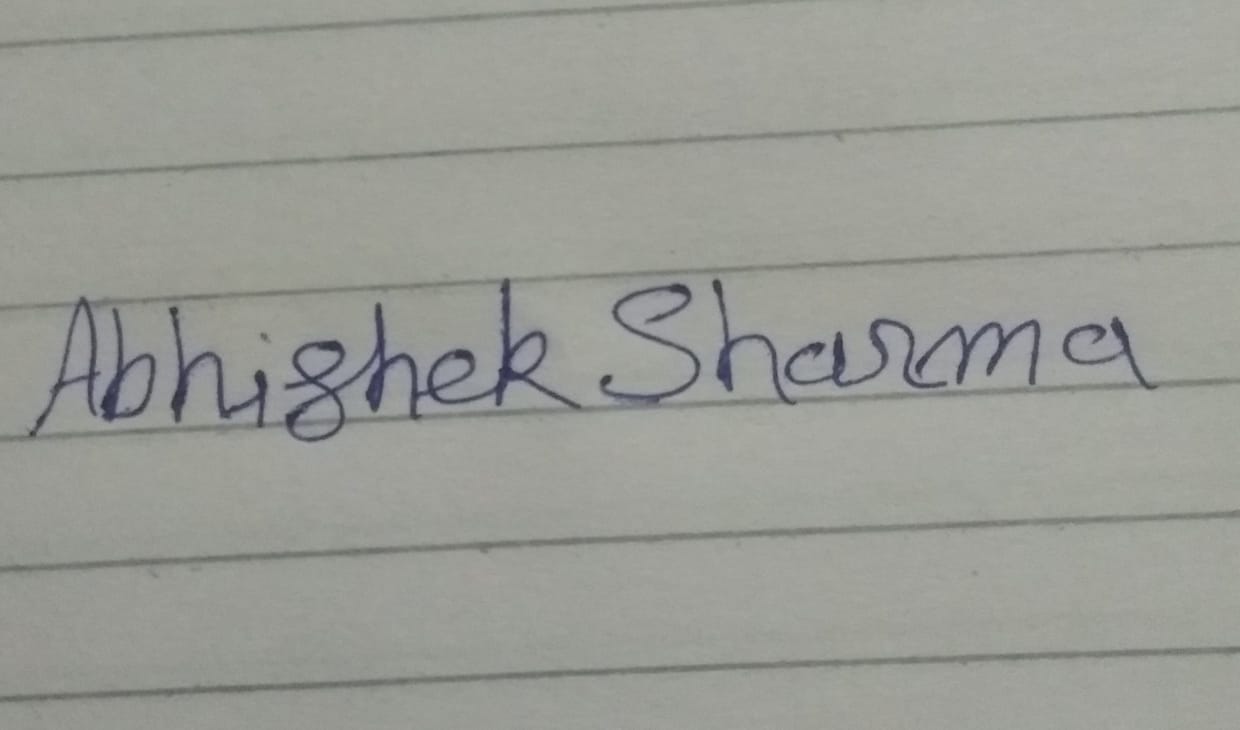 Abhishek Sharma